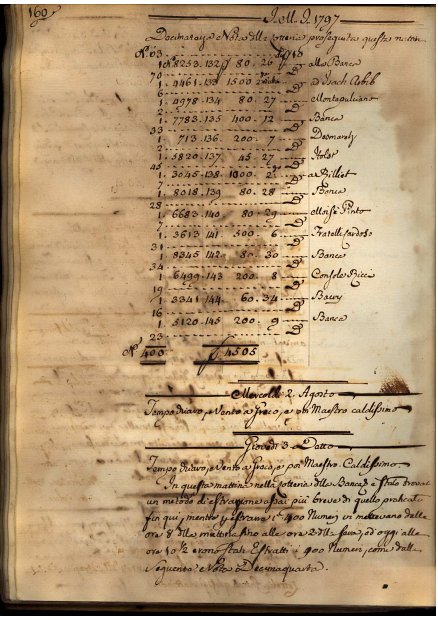 160
I.M.I. 1797
Decimaterza Nota della lotteria proseguita questa mattina
No. 63
1. No. 8253. 132 ƒ 80. 26 alla Banca
70
1. 4461. 133 1500 ad Isach
6
1. 4978. 134. 80. 27 Montepulciano
1. 7783. 135 400. 12 Banca
33
1. 713. 136. 200. 7
1. 5820. 137. 45. 27
45
1. 3045. 138. 1000. 2 a Billiet
7
1. 8018. 139 80. 28 Banca
28
1. 6683. 140. 80. 29 Moisè Pinto
1. 3613. 141. 500. 6 Fratelli Cardoso
31
1. 8345. 142. 80. 30 Banca
34
1. 6499. 143 200. 8 Console Ricca
19
1. 3341. 144. 60. 34
16
1. 5120. 145. 200. 9 Banca
23
No. 400 ƒ 4505
Mercoldì 2. Agosto
Tempo buono, e Vento a Greco, e poi Maestro caldissimo
Giovedì 3. Detto
Tempo buono, e Vento a Greco, e poi Maestro. Caldissimo
In questa mattina nella lotteria della Banca è stato trovato
un metodo di estrazione assai più breve di quello praticato
fin qui, mentre per estrarre i 400 Numeri vi mettevano dalle
ore 8 della mattina fino alle ore 2 della sera, ed oggi alle
ore 10 1/2 erono stati Estratti i 400 Numeri, come dalla
Seguente Nota Decimaquarta.